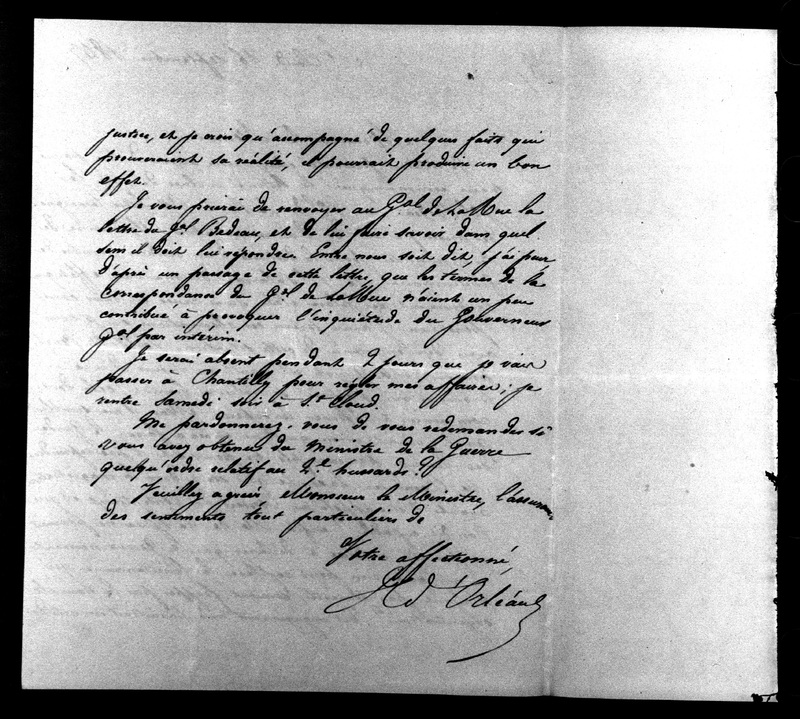 justes, et je crois qu'accompagné de quelques faits qui
prouveraient sa réalité, il pourrait produire un bon
effet.
Je vous prierai de renvoyer au Gal de LaRue la
lettre du Gal Bedeau, et de lui faire savoir dans quel
sens il doit lui répondre. Entre nous soit dit, j'ai peur
d'après un passage de cette lettre, que les termes de la
correspondance du Gal de LaRue n'aient un peu
contribué à provoquer l'inquiétude du Gouverneur
Gal par intérim.
Je serai absent pendant 2 jours que je vais
passer à Chantilly pour régler mes affaires; je
rentre Samedi soir à St Cloud.
Me pardonnerez-vous de vous redemander si
vous avez obtenu du Ministre de la Guerre
quelqu'ordre relatif au 2e hussards?
Veuillez agréer Monsieur le Ministre, l'assurance
des sentiments tout particuliers de
Votre affectionné,
H d'Orléans